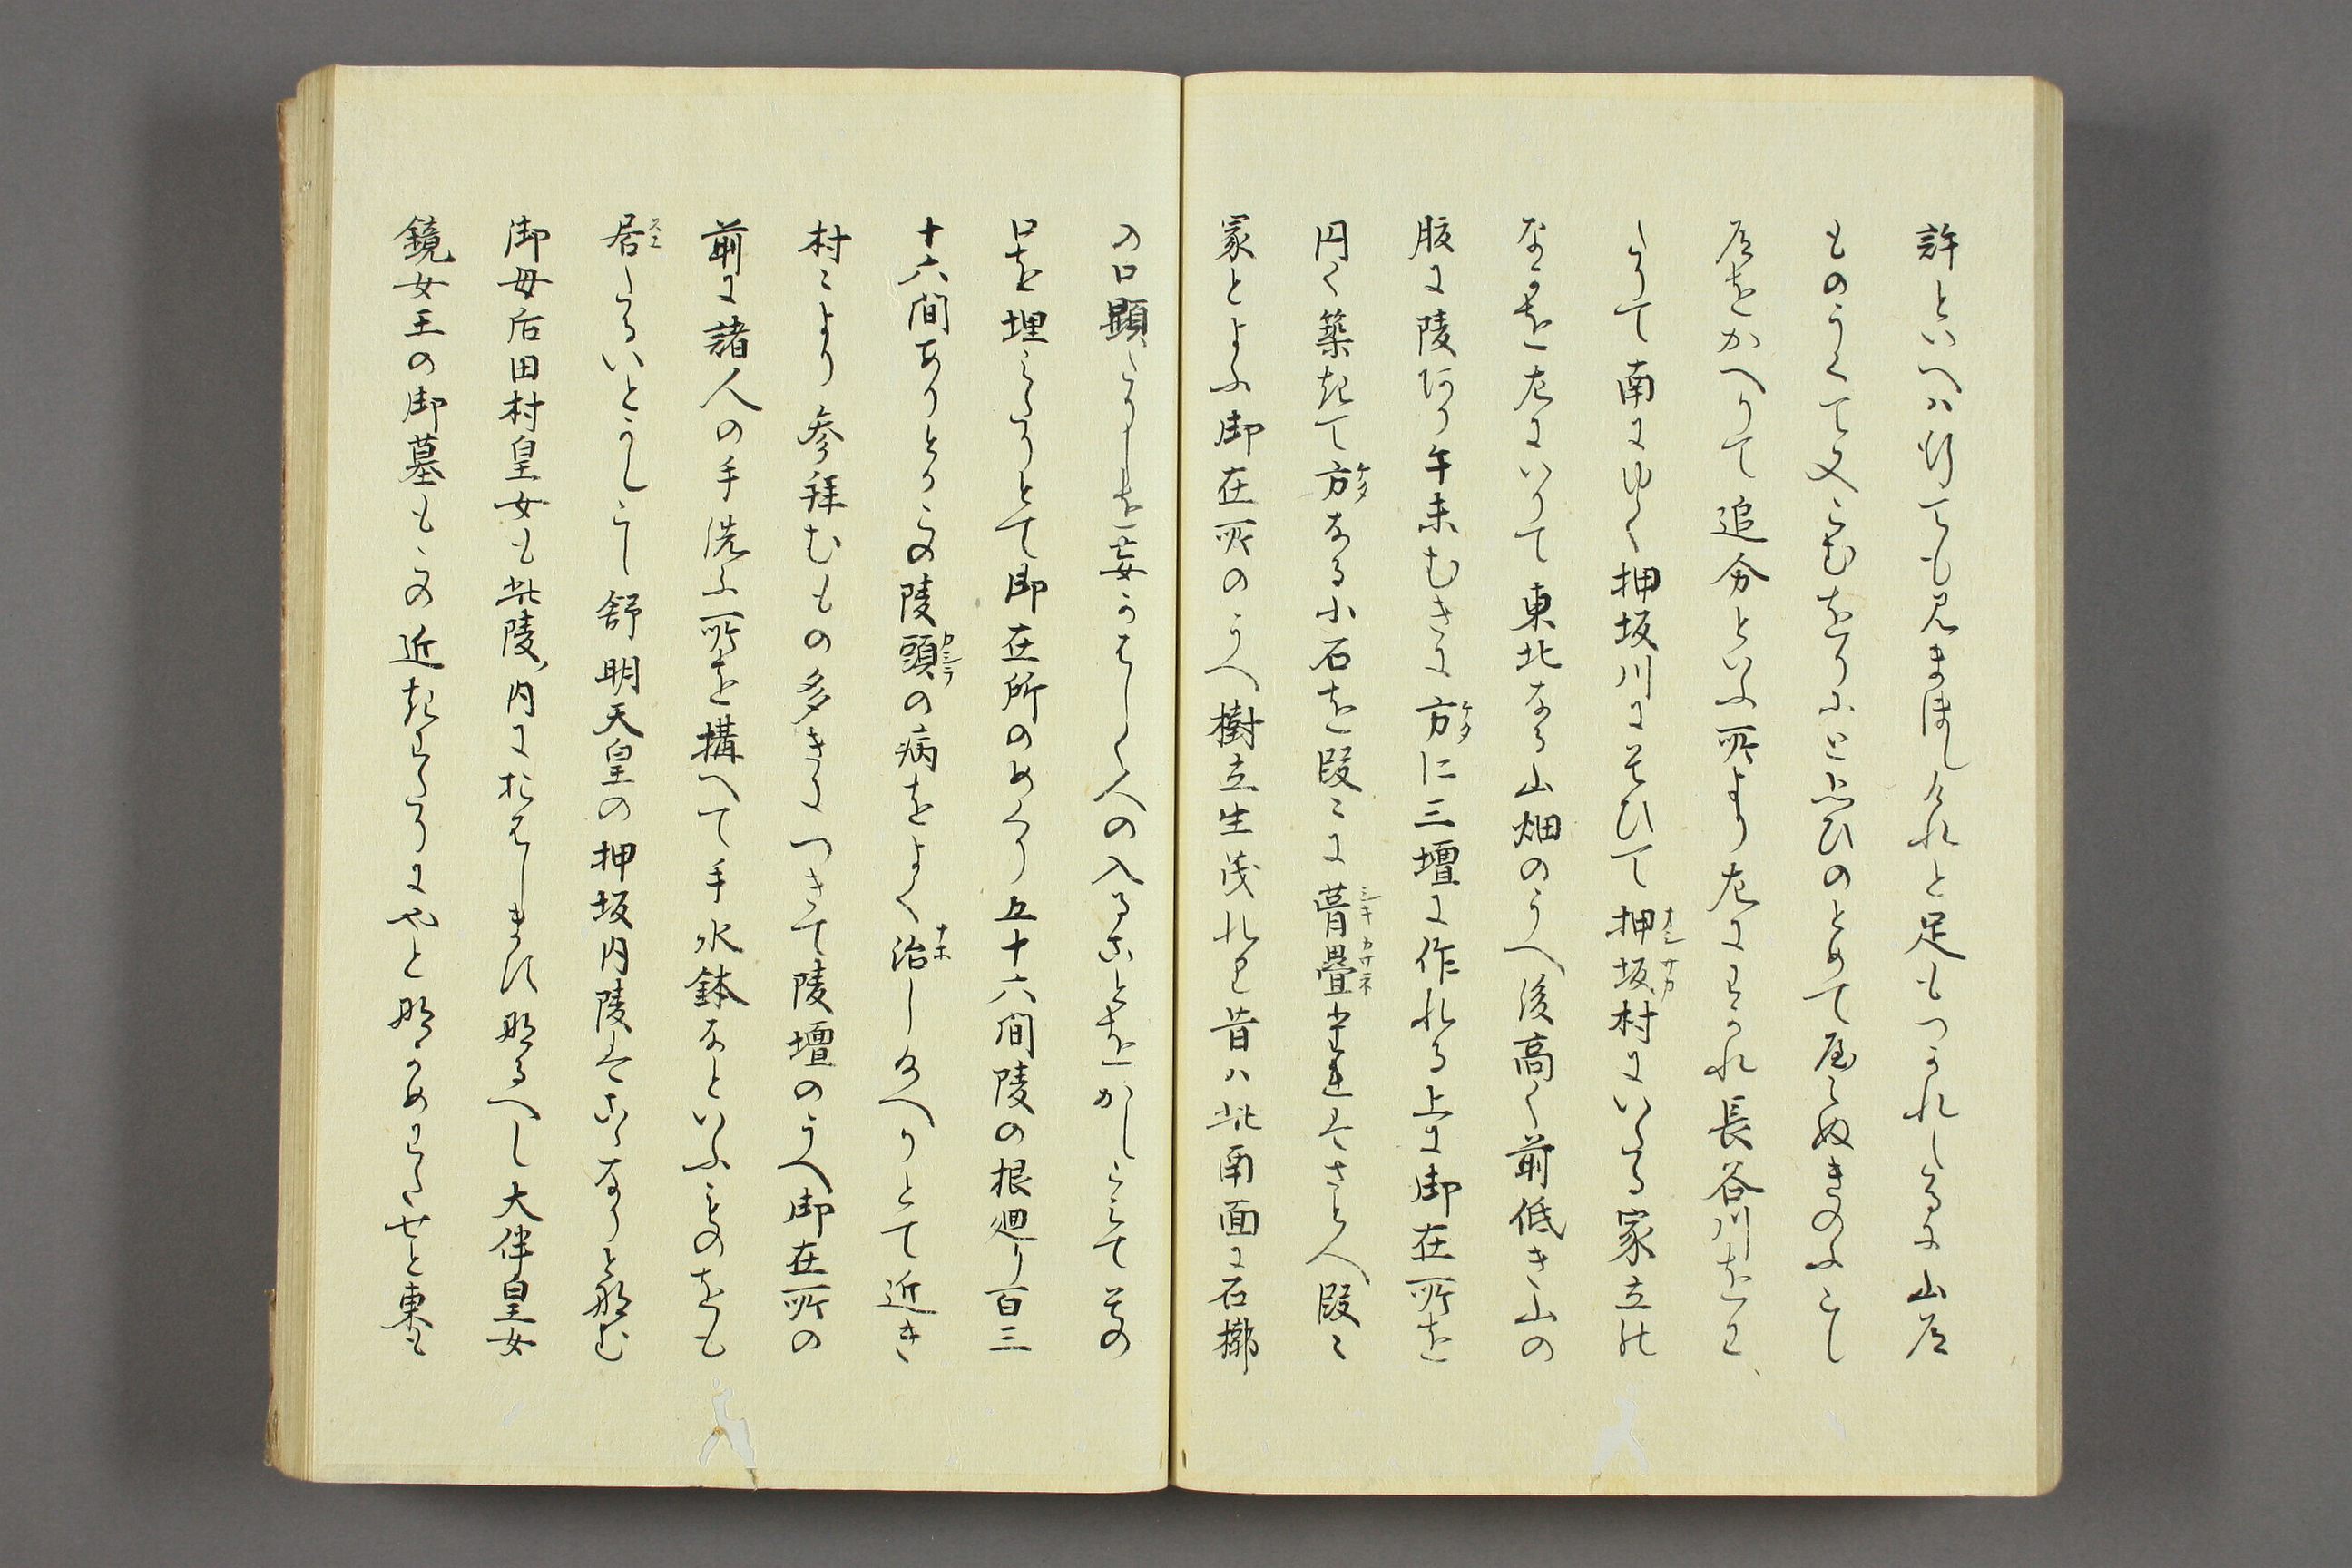 許といへハ行ても見まほしけれと足もつかれしるに山道
ものうくて又こむをりにと思ひのとめて尾しぬきのふこし
道をかへりて追分といふ所より左にわかれ長谷川をわ
たりて南にゆく押坂川にそひて押坂村にいたる家立の
なかを左にいりて東北なる山畑のうへ後高く前低き山の
腹に陵あり午未むきに方に三壇に作れる上に御在所を
円く築きて方なる小石を段々に葺畳たれはさと人段々
冢とよふ御在所のうへ樹立生茂れり昔ハ此南面に石槨
の口顕たりしを妄りはしく人の入ることをかしこみてその
口を埋みたりとて御在所のめくり五十六間陵の根廻り百三
十六間ありとかこの陵頭の病をよく治し給へりとて近き
村々より参拝むもの多きにつきて陵壇のうへ御在所の
前に諸人の手洗ふ所を構へて手水鉢なといふものをも
居たるいとかしこし舒明天皇の押坂内陵はこゝなりと那む
御母后田村皇女も此陵ノ内におはします那るへし大伴皇女
鏡女王の御墓もこの近きわたりにやと那かめわたせと東も